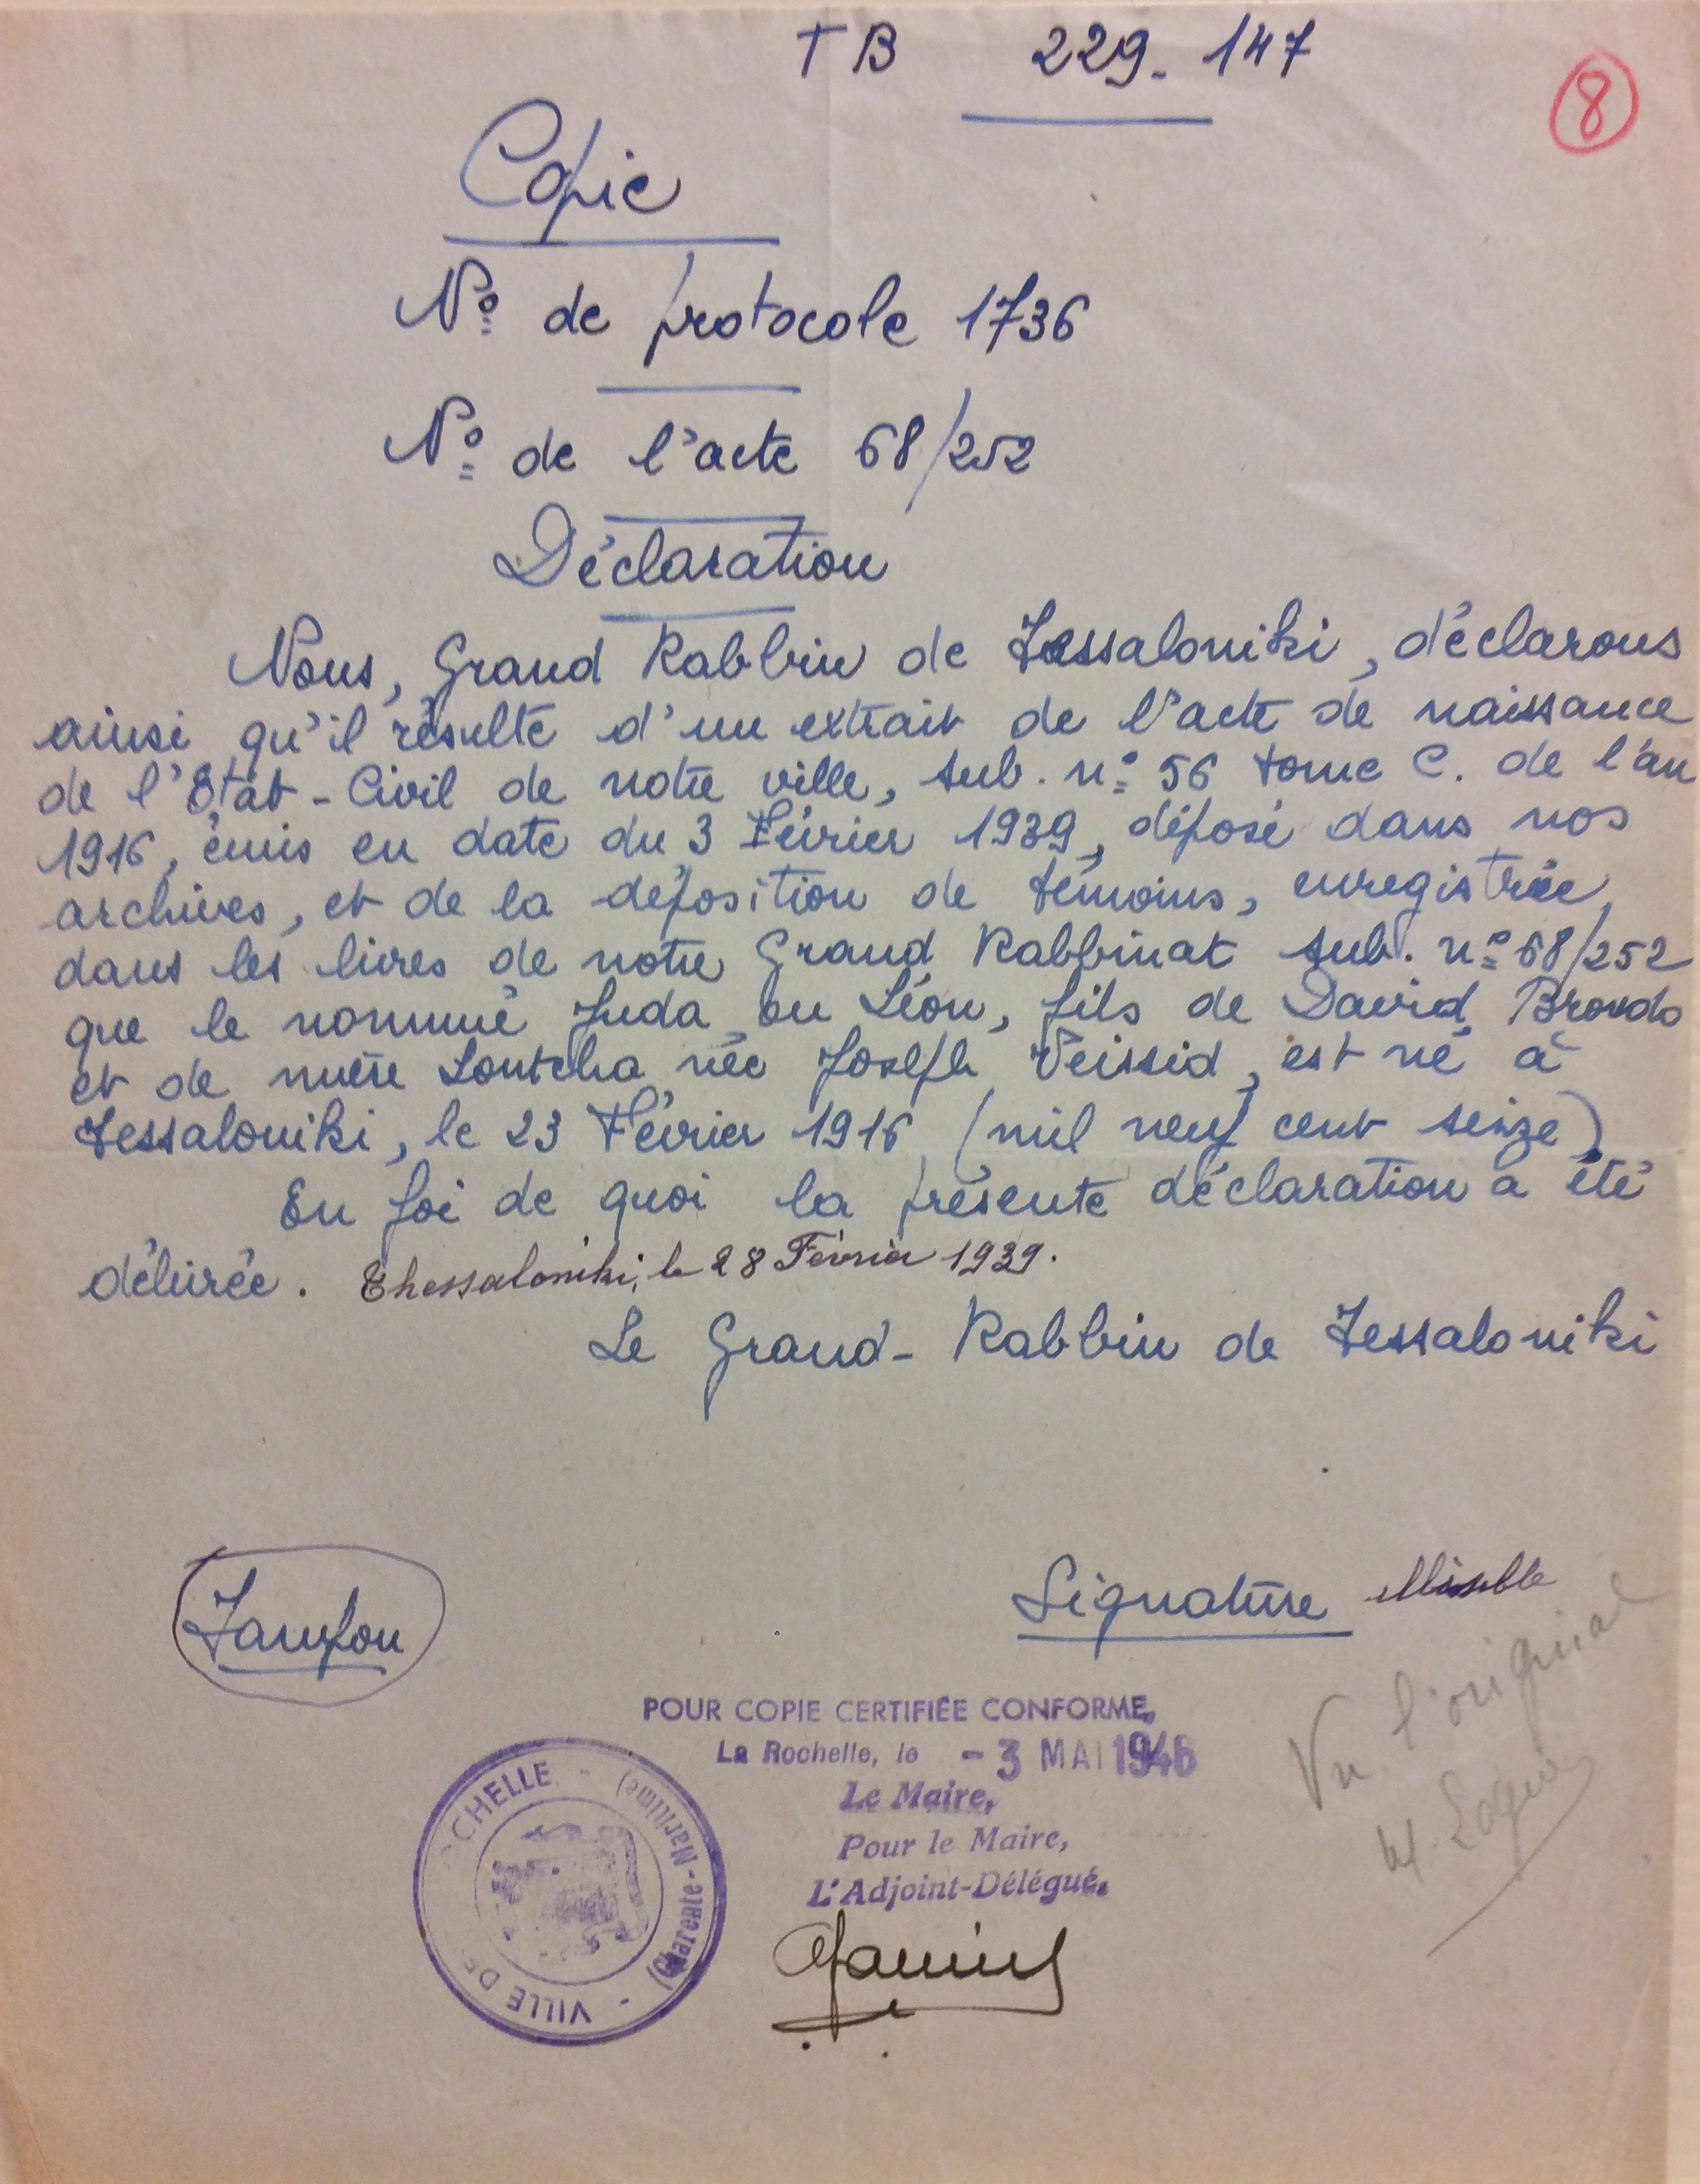 TB 229-147
8
Copie
Nº de protocole 1736
Nº de l'acte 68/252
Déclaration
Nous, Grand Rabbin de Tessaloniki, déclarons
ainsi qu'il résulte d'un extrait de l'acte de naissance
de l'Etat-Civil de notre ville, sub. nº 56 tome C. de l'an
1916, émis en date du 3 Février 1939, déposé dans nos
archives, et de la déposition de témoins, enregistrée
dans les livres de notre Grand Rabbinat sub. nº 68/252
que le nommé Juda ou Léon, fils de David Broudo
et de mère Loutcha née Joseph Veissid, est né à
Tessaloniki, le 23 Février 1916 (mil neuf cent seize)
En foi de quoi la présente déclaration a été
délivrée. Thessaloniki, le 28 Février 1939.
Le Grand-Rabbin de Tessaloniki
Tampon
Signature illisible
Vu l'original
POUR COPIE CERTIFIÉE CONFORME,
La Rochelle, le -3 MAI 1946
Le Maire,
Pour le Maire,
L'Adjoint-Délégué.
VILLE DE CHELLE - (Charente-Maritime) -